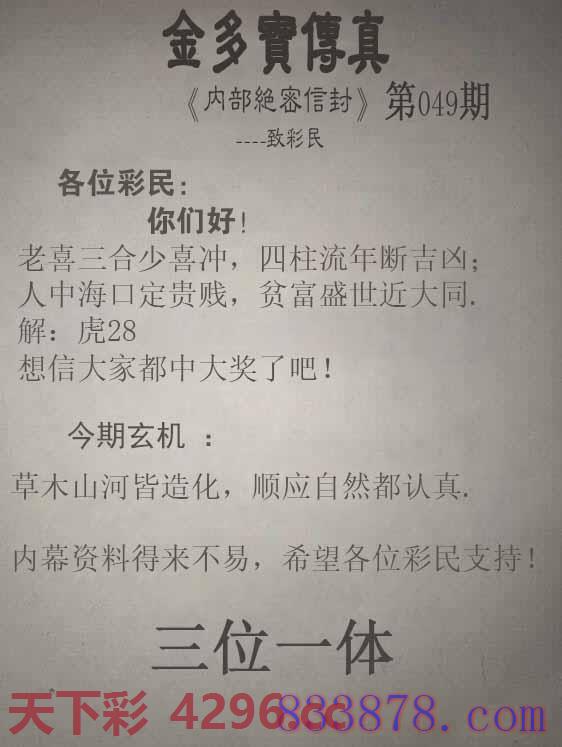 金多寶傳真
《内部絶密信封》第049期
----致彩民
各位彩民:
你们好!
老喜三合少喜冲，四柱流年断吉凶；
人中海口定贵贱，贫富盛世近大同.
解：虎28
想信大家都中大奖了吧！
今期玄机 ：
草木山河皆造化，顺应自然都认真.
内幕资料得来不易，希望各位彩民支持！
三位一体
天下彩 4296.cc
883878.com